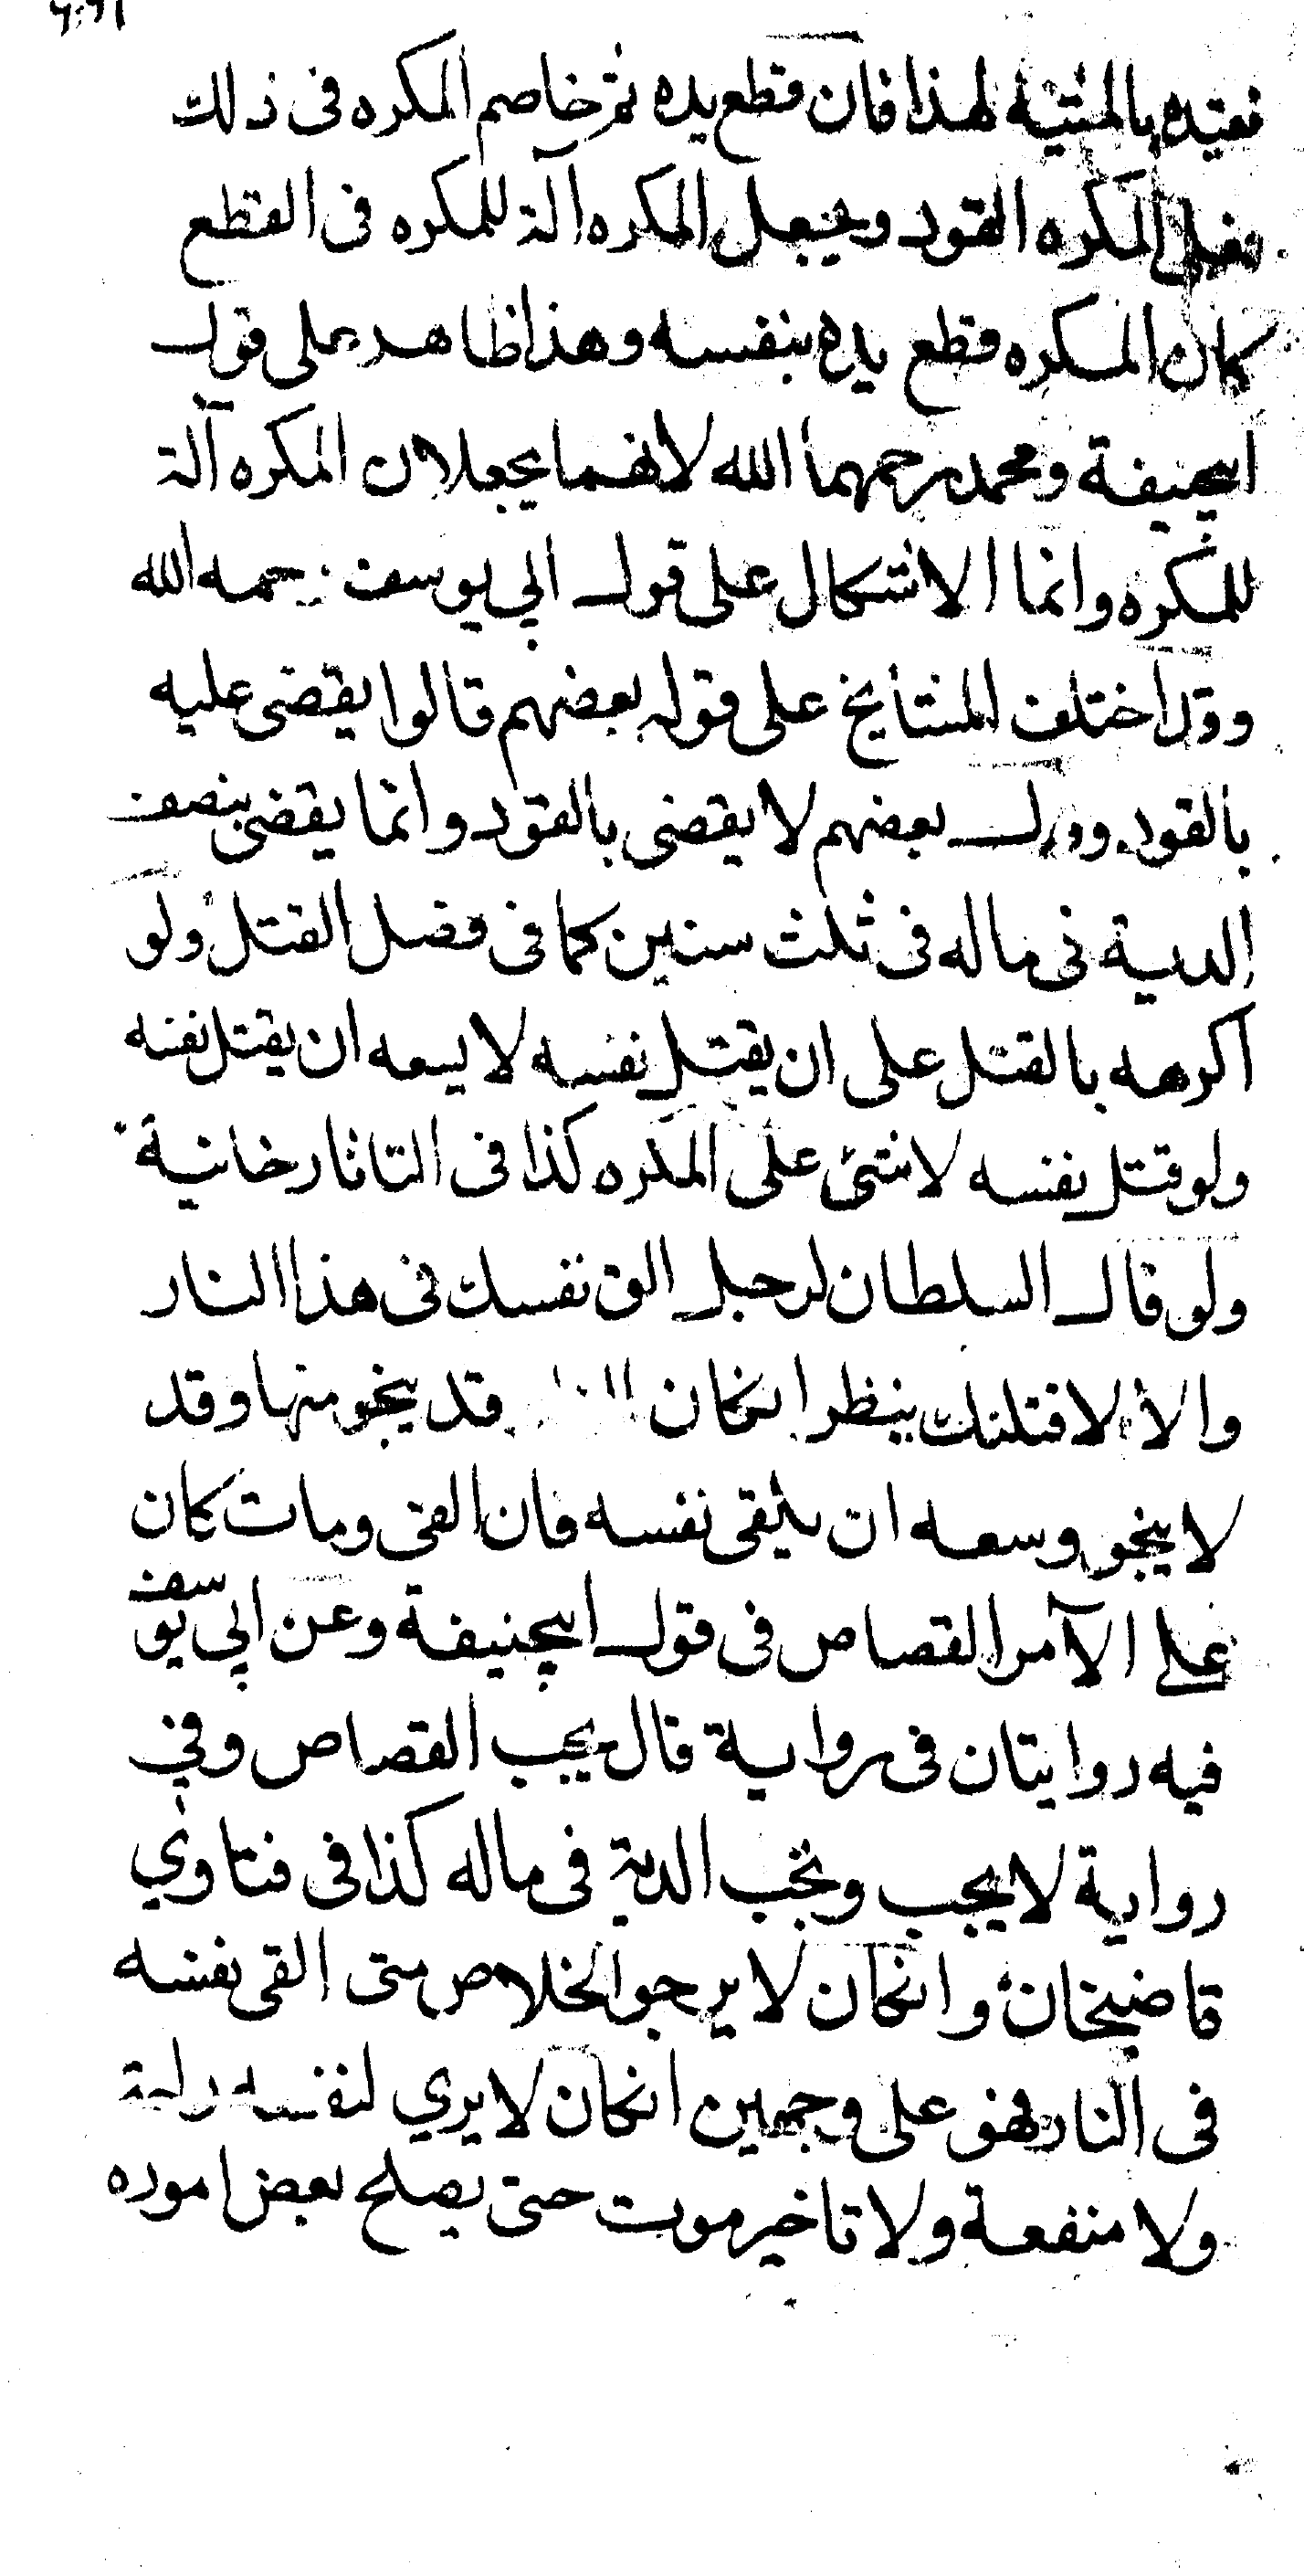 فقيده بالمشيئة لهذا فان قطع يده ثم خاصم المكره فى ذلك
فعلى المكره القود ويجعل المكره آلة للمكره فى القطع
كان المكره قطع يده بنفسه وهذا ظاهر على قول
ابيحنيفة ومحمد رحمهما الله لانهما يجعلان المكره آلة
للمكره وانما الاشكال على قول ابي يوسف رحمه الله
وقد اختلف المشايخ على قوله بعضهم قالوا يقضى عليه
بالقود وقال بعضهم لا يقضى بالقود وانما يقضى بنصف
الدية فى ماله فى ثلث سنين كما فى فصل القتل ولو
اكرهه بالقتل على ان يقتل نفسه لا يسعه ان يقتل نفسه
ولو قتل نفسه لا شئ على المكره كذا فى التاتارخانية
ولو قال السلطان لرجل الق نفسك فى هذا النار
والا لاقتلنك ينظر انكان قد ينجو منها وقد
لا ينجو وسعه ان يلقى نفسه فان القى ومات كان
على الآمر القصاص فى قول ابيحنيفة وعن ابي يوسف
فيه روايتان فى رواية قال يجب القصاص وفي
رواية لا يجب وتجب الدية فى ماله كذا فى فتاوي
قاضيخان وانكان لا يرجو الخلاص متى القى نفسه
فى النار فهو على وجهين انكان لا يري لنفسه راحة
ولا منفعة ولا تاخير موت حتى يصلح بعض اموره